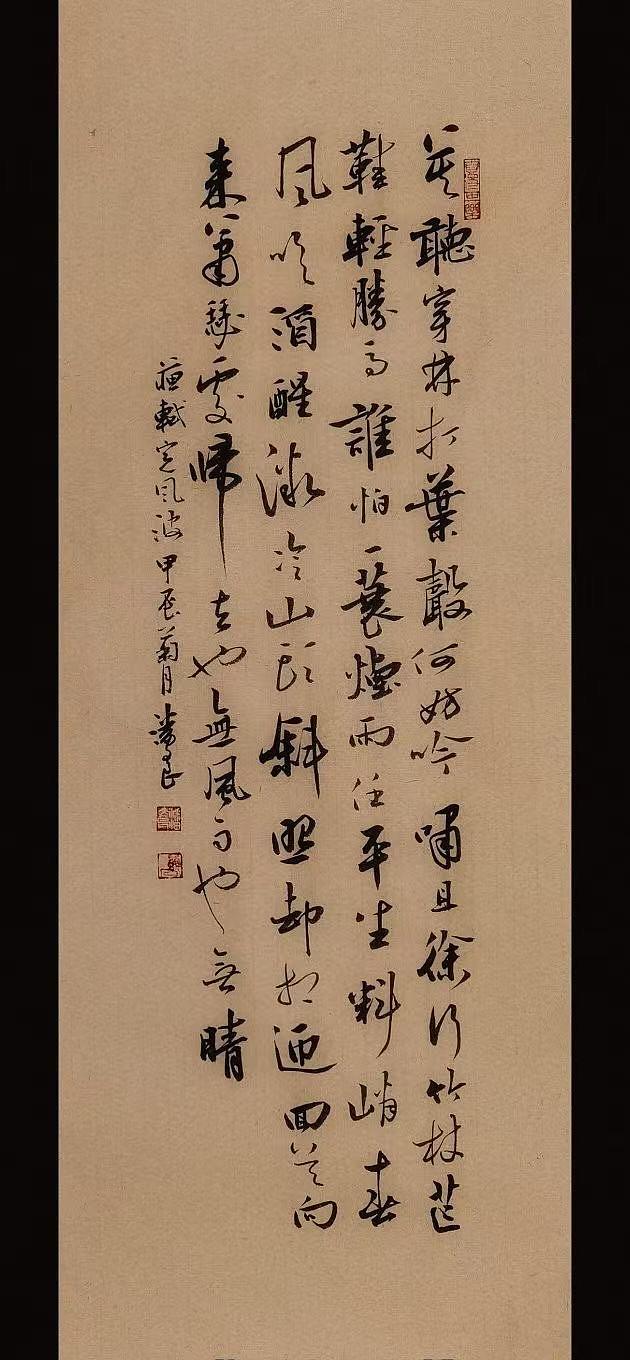 莫聽穿林打葉聲何妨吟嘯且徐行竹杖芒
鞋輕勝馬誰怕一蓑煙雨任平生料峭春
風吹酒醒微冷山頭斜照却相迎回首向
來蕭瑟處歸去也無風雨也無晴
蘇軾定風波甲辰菊月良